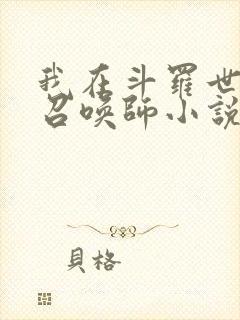 我在斗羅世
召喚師小說
貝格